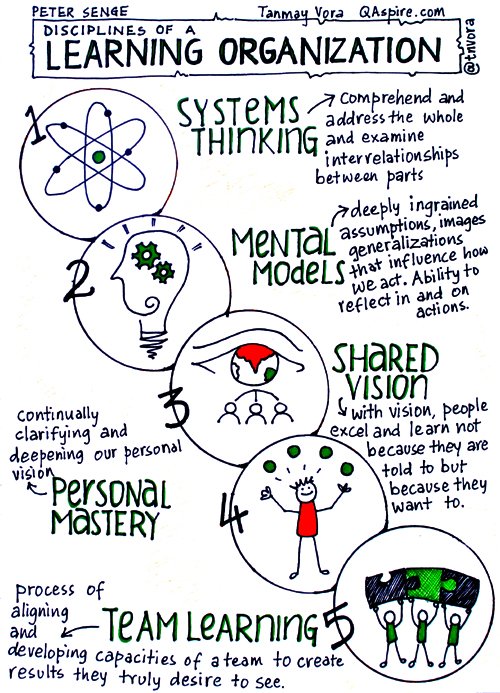 PETER SENGE
Tanmay Vora QAspire.com
DISCIPLINES OF A
LEARNING ORGANIZATION
@tnvora
1
SYSTEMS
THINKING
Comprehend and
address the whole
and examine
interrelationships
between parts
2
MENTAL
MODELS
deeply ingrained
assumptions, images
generalizations
that influence how
we act. Ability to
reflect in and on
actions.
3
SHARED
VISION
with vision, people
excel and learn not
because they are
told to but
because they
want to.
continually
clarifying and
deepening our personal
vision
PERSONAL
MASTERY
4
process of
aligning
and
developing capacities of a team to create
results they truly desire to see.
TEAM LEARNING
5